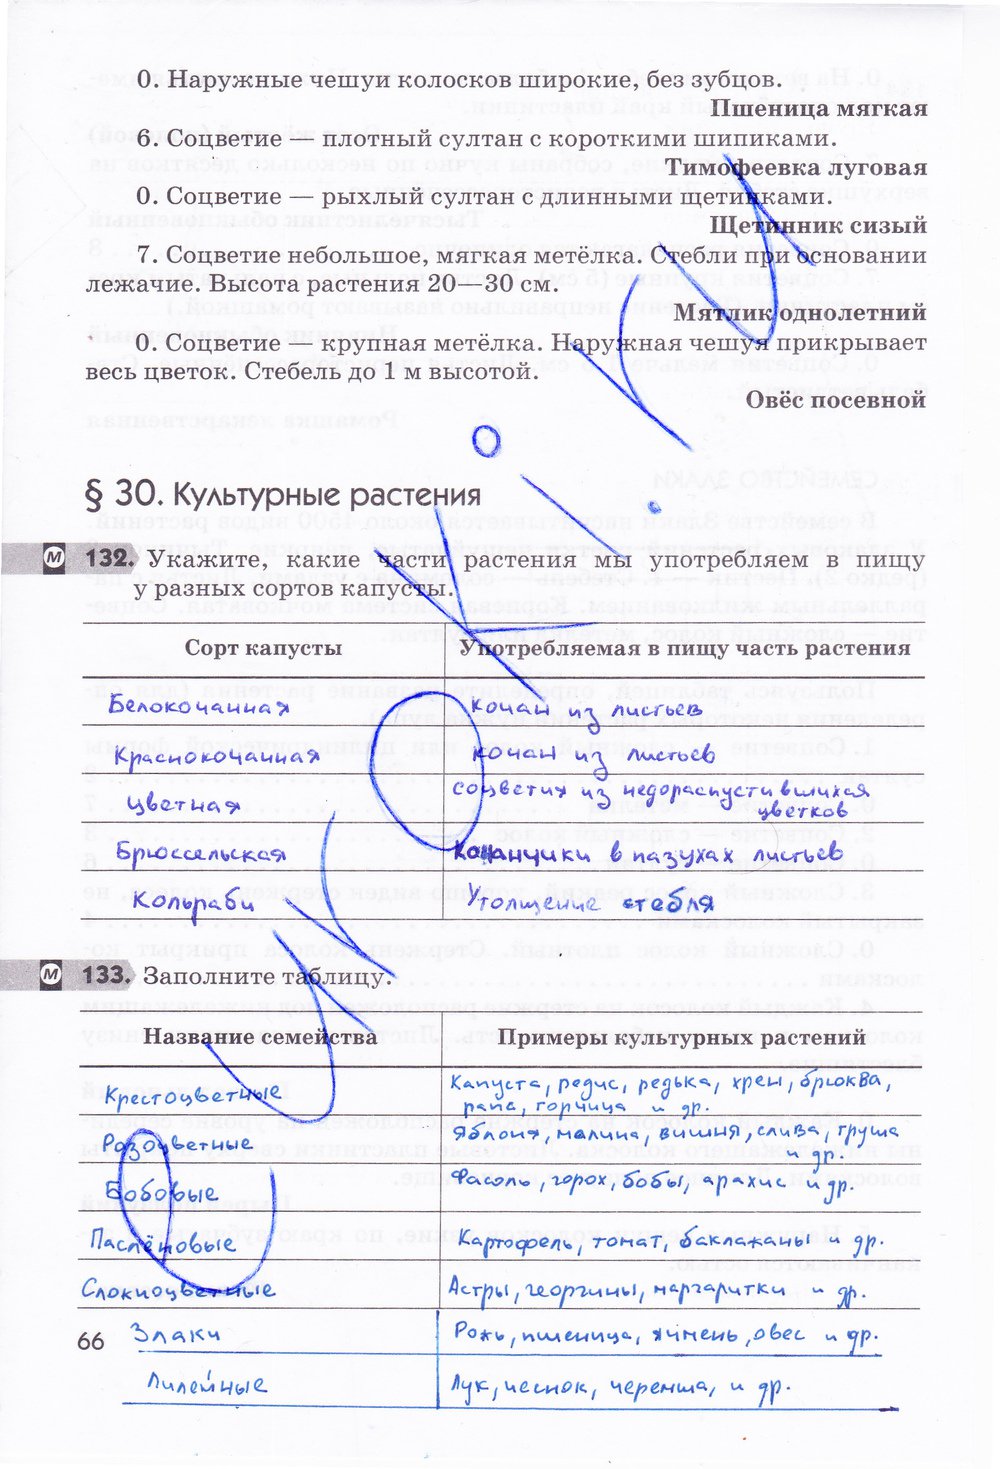 0. Наружные чешуи колосков широкие, без зубцов.
Пшеница мягкая
6. Соцветие — плотный султан с короткими шипиками.
Тимофеевка луговая
0. Соцветие — рыхлый султан с длинными щетинками.
Щетинник сизый
7. Соцветие небольшое, мягкая метёлка. Стебли при основании
лежачие. Высота растения 20—30 см.
Мятлик однолетний
0. Соцветие — крупная метёлка. Наружная чешуя прикрывает
весь цветок. Стебель до 1 м высотой.
Овёс посевной
§ 30. Культурные растения
М 132. Укажите, какие части растения мы употребляем в пищу
у разных сортов капусты.
Сорт капусты Употребляемая в пищу часть растения
Белокочанная кочан из листьев
Краснокочанная кочан из листьев
Цветная соцветия из недораспустившихся
цветков
Брюссельская Кочанчики в пазухах листьев
Кольраби Утолщение стебля
М 133. Заполните таблицу.
Название семейства Примеры культурных растений
Крестоцветные Капуста, редис, редька, хрен, брюква,
рапс, горчица и др.
Розоцветные Яблоня, малина, вишня, слива, груша
и др.
Бобовые Фасоль, горох, бобы, арахис и др.
Паслёновые Картофель, томат, баклажаны и др.
Сложноцветные Астры, георгины, маргаритки и др.
66 Злаки Рожь, пшеница, ячмень, овес и др.
Лилейные Лук, чеснок, черемша, и др.